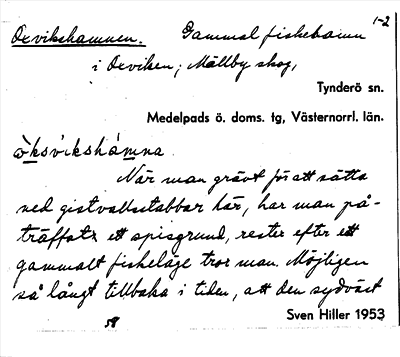 1-2
Oxvikshamnen. Gammal fiskehamn
i Oxviken; Mällby skog,
Tynderö sn.
Medelpads ö. doms. tg, Västernorrl. län.
ò̀ksvikshàmna.
När man grävt för att sätta
ned gistvallsstabbar här, har man på-
träffat ett spisgrund, rester efter ett
gammalt fiskeläge tror man. Möjligen
så långt tillbaka i tiden, att den sydväst
Sven Hiller 1953
58